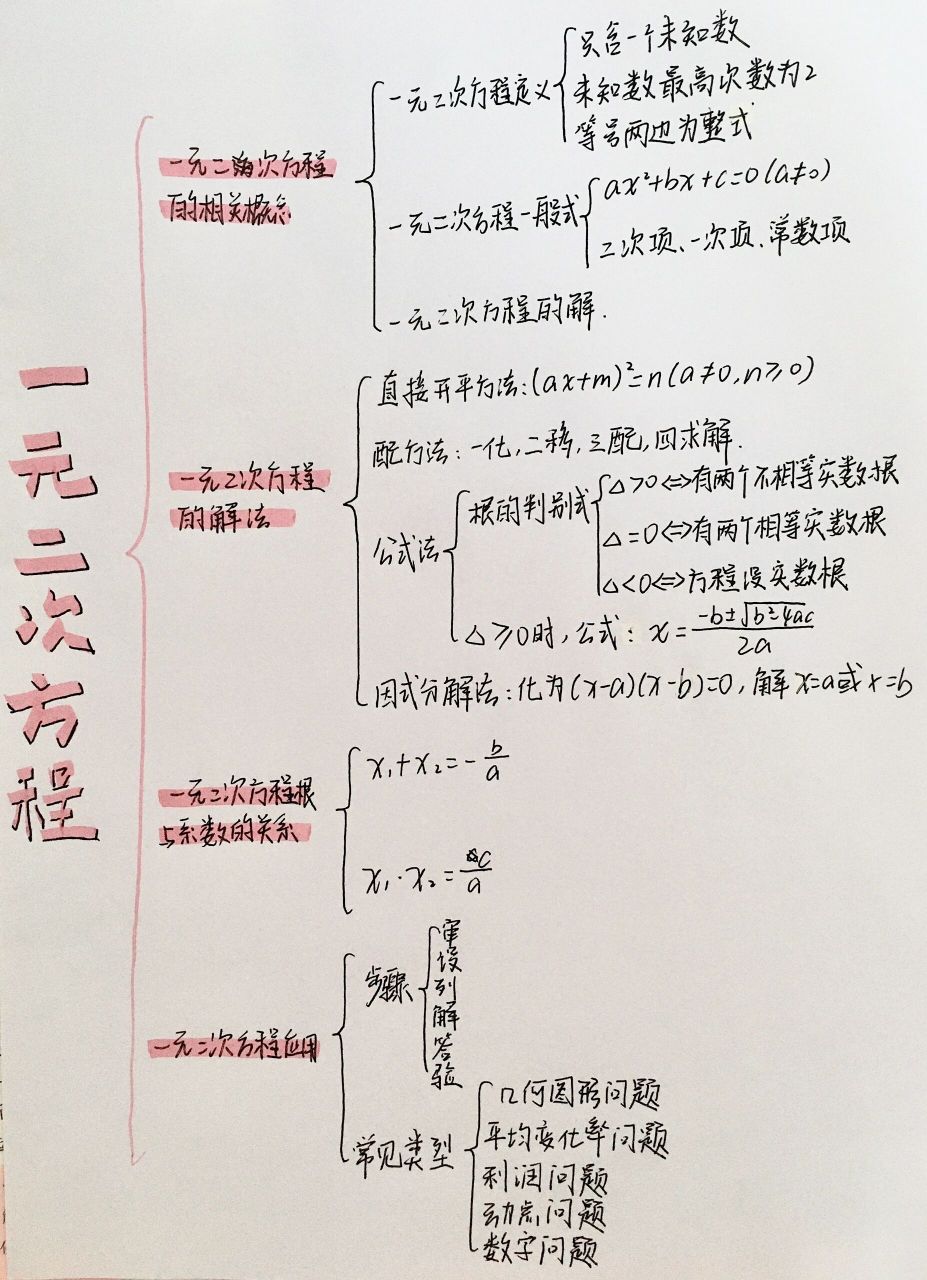 一元二次方程
一元二次方程
的相关概念
一元二次方程定义
只含一个未知数
未知数最高次数为2
等号两边为整式
一元二次方程一般式
ax²+bx+c=0(a≠0)
二次项、一次项、常数项
一元二次方程的解.
一元二次方程
的解法
直接开平方法:(ax+m)²=n(a≠0,n≥0)
配方法:一化,二移,三配,四求解.
公式法
根的判别式
△>0⇔有两个不相等实数根
△=0⇔有两个相等实数根
△<0⇔方程没实数根
△≥0时,公式: x=\frac{-b±\sqrt{b²-4ac}}{2a}
因式分解法:化为(x-a)(x-b)=0,解x=a或x=b
一元二次方程根
与系数的关系
x₁+x₂=-\frac{b}{a}
x₁·x₂=\frac{c}{a}
一元二次方程应用
步骤
审
设
列
解
答
验
常见类型
几何图形问题
平均变化率问题
利润问题
动点问题
数字问题